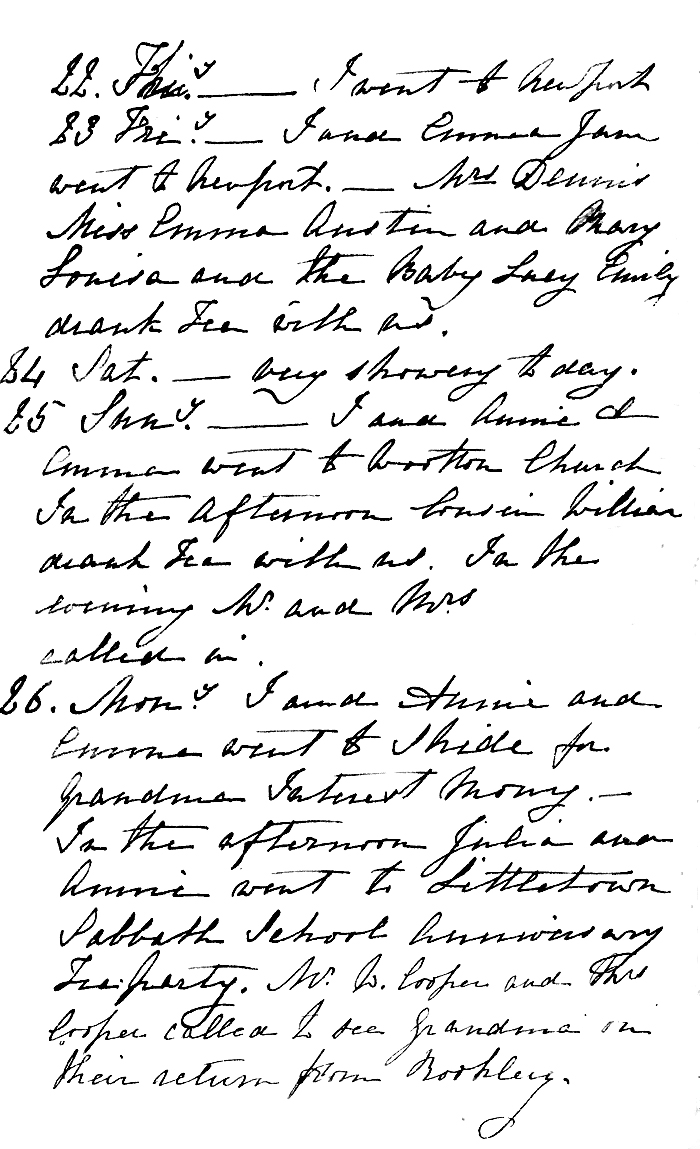 22. Thu.y —— I went to Newport
23 Fri.y — I and Emma Jane
went to Newport. — Mrs Dennis
Miss Emma Austin and Mary
Louisa and the Baby Lucy Emily
drank Tea with us.
24 Sat. — very showery to day.
25 Sun.y —— I and Annie &
Emma went to Wootton Church
In the afternoon Cousin William
drank Tea with us. In the
evening Mr. and Mrs
called in.
26. Mon.y I and Annie and
Emma went to Shide for
Grandma Interest Mony. —
In the afternoon Julia and
Annie went to Littletown
Sabbath School Anniversary
Tea party. Mr. W. Cooper and Mrs
Cooper called to see Grandma on
their return from Rookley.